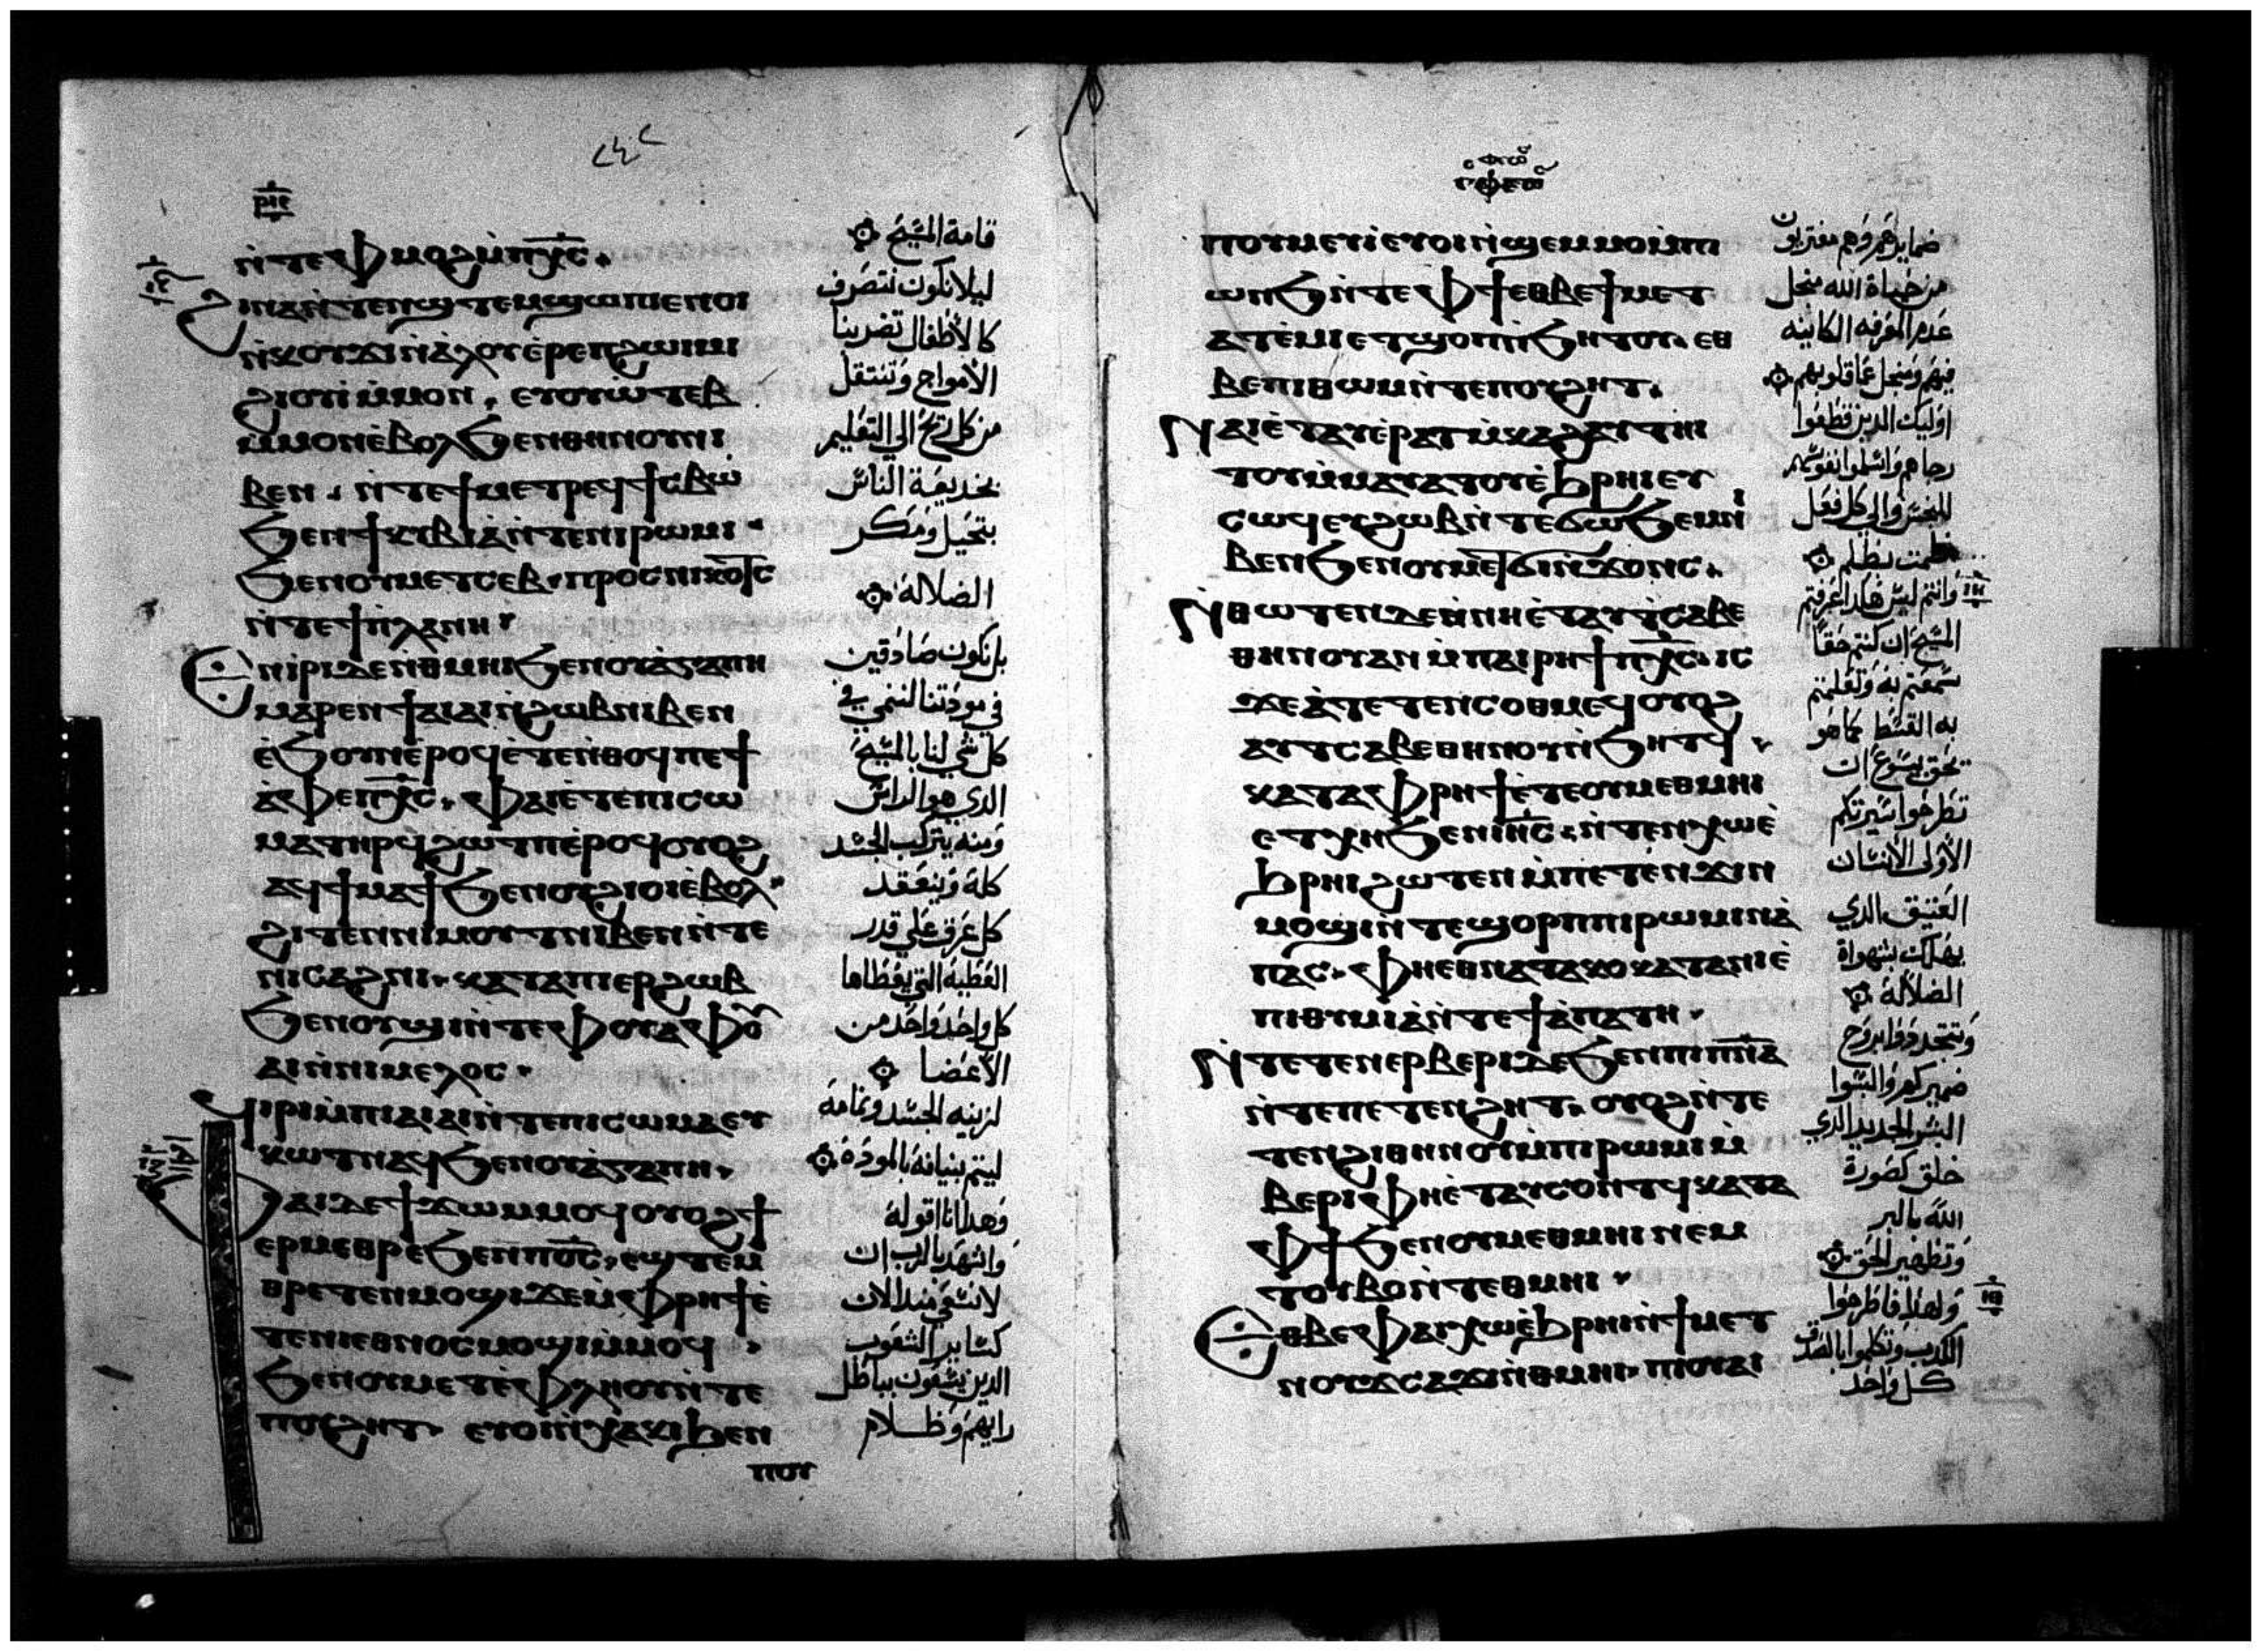 ⲣⲓⲉ
ⲛ̀ⲧⲉⲫⲙⲟϩ ⲙ̀ⲡⲭ̅ⲥ̅.
ϩⲓⲛⲁ ⲛ̀ⲧⲉⲛϣⲧⲉⲙϣⲱⲡⲓ ⲉⲛⲟⲓ
ⲛ̀ⲕⲟⲩϫⲓ ⲛ̀ⲁⲗⲟⲩ ⲉ̀ⲣⲉⲡϩⲱⲓⲙⲓ
ϩⲓⲟⲩⲓ̀ ⲙ̀ⲙⲟⲛ. ⲉⲩⲟⲩⲱ̀ⲧⲉⲃ
ⲙ̀ⲙⲟⲛ ⲉ̀ⲃⲟⲗ ϧⲉⲛⲑⲏⲛⲟⲩ ⲛⲓ
ⲃⲉⲛ. ⲛ̀ⲧⲉϯⲙⲉⲧⲣⲉϥϯⲥⲃⲱ
ϧⲉⲛϯⲕⲩⲃⲓⲁ̀ ⲛ̀ⲧⲉⲛⲓⲣⲱⲙⲓ
ϧⲉⲛⲟⲩⲙⲉⲧⲥⲉⲃⲉ ⲡⲣⲟⲥ ⲛⲓⲕⲟⲧⲥ
ⲛ̀ⲧⲉϯⲡⲗⲁⲛⲏ
Ⲉⲛⲓⲣⲓ ⲇⲉ ⲛ̀ⲑⲙⲏⲓ ϧⲉⲛⲟⲩⲁ̀ⲅⲁⲡⲏ
ⲙⲁⲣⲉⲛϯⲁⲓⲁⲓ ⲛ̀ϩⲱⲃ ⲛⲓⲃⲉⲛ
ⲉ̀ϧⲟⲩⲛ ⲉ̀ⲣⲟϥ ⲉ̀ⲧⲉⲛ̀ⲑⲟϥ ⲡⲉ ϯ
ⲁ̀ⲫⲉ ⲡⲭ̅ⲥ̅. ⲫⲁⲓ ⲉ̀ⲧⲉⲡⲓⲥⲱ
ⲙⲁ ⲧⲏⲣϥ ϩⲱⲧⲡ ⲉ̀ⲣⲟϥ ⲟⲩⲟϩ
ⲁϥϯⲙⲁϯ ϧⲉⲛⲟⲩϩⲓⲟⲓ ⲉ̀ⲃⲟⲗ
ϩⲓⲧⲉⲛ ⲛⲓⲙⲟⲩⲧ ⲛⲓⲃⲉⲛ ⲛ̀ⲧⲉ
ⲛⲓⲥⲁϩⲛⲓ. ⲕⲁⲧⲁ ⲡⲓⲉⲣϩⲱⲃ
ϧⲉⲛⲟⲩϣⲓ ⲛ̀ⲧⲉⲫⲟⲩⲁ ⲫⲟⲩ
ⲁⲓ ⲛ̀ⲛⲓⲙⲉⲗⲟⲥ.
ϥⲓⲣⲓ ⲙ̀ⲡⲓⲁⲓⲁⲓ ⲛ̀ⲧⲉⲡⲓⲥⲱⲙⲁ ⲉⲩ
ⲕⲱⲧ ⲛⲁϥ ϧⲉⲛⲟⲩⲁ̀ⲅⲁⲡⲏ.
Ⲫⲁⲓ ⲇⲉ ϯϫⲱ ⲙ̀ⲙⲟϥ ⲟⲩⲟϩ ϯ
ⲉⲣⲙⲉⲑⲣⲉ ϧⲉⲛⲡϭ̅ⲥ̅. ⲉϣⲧⲉⲙ
ⲑⲣⲉⲧⲉⲛⲙⲟϣⲓ ϫⲉ ⲙ̀ⲫⲣⲏϯ ⲉ̀
ⲧⲉⲛⲓⲉⲑⲛⲟⲥ ⲙⲟϣⲓ ⲙ̀ⲙⲟϥ
ϧⲉⲛⲟⲩⲙⲉⲧⲉ̀ⲫⲗⲏⲟⲩ ⲛ̀ⲧⲉ
ⲡⲟⲩϩⲏⲧ. ⲉⲩⲟⲓ ⲛ̀ⲭⲁⲕⲓ ϧⲉⲛ
ⲡⲟⲩ
قامة المسيح
ليلا نكون نتصرف
كالاطفال تضربنا
الامواج وتنتقل
من كل ريح الي التعليم
بخديعة الناس
بتحيل ومكر
الضلالة
بل نكون صادقين
في مودتنا لننمي في
كل شي لنا بالمسيح
الدي هو الراس
ومنه يتركب الجسد
كله وينعقد
كل عرق علي قدر
العطية التي يعطاها
كل واحد واحد من
الاعضا
لزنيه الجسد وتمامه
ليتم بنيانه بالمودة
وهدا انا اقوله
واشهد بالرب ان
لا تسعي مند الان
كساير الشعوب
الدين يسعون بباطل
رايهم وظلام
ⲡⲟⲩⲙⲉⲩⲓ̀ ⲉⲩⲟⲓ ⲛ̀ϣⲉⲙⲙⲟ ⲙ̀ⲡⲓ
ⲱⲛϧ ⲛ̀ⲧⲉⲫϯ ⲉⲑⲃⲉϯⲙⲉⲧ
ⲁⲧⲉ̀ⲙⲓ ⲉⲧϣⲟⲡ ⲛ̀ϧⲏⲧⲟⲩ. ⲉⲑ
ⲃⲉⲡⲓⲑⲱⲙ ⲛ̀ⲧⲉⲡⲟⲩϩⲏⲧ.
Ⲛⲁⲓ ⲉ̀ⲧⲁⲩⲉ̀ⲣⲁⲧⲙ̀ⲕⲁϩ ⲁⲩⲧⲏⲓ
ⲧⲟⲩ ⲙ̀ⲙⲁⲩⲁⲧⲟⲩ ⲉ̀ϧⲣⲏⲓ ⲉⲩ
ⲥⲱϥ ⲉⲩϩⲱⲃ ⲛ̀ⲧⲉϭⲱϧⲉⲙ ⲛⲓ
ⲃⲉⲛ ϧⲉⲛⲟⲩⲙⲉⲧϭⲓⲛϫⲟⲛⲥ.
Ⲛ̀ⲑⲱⲧⲉⲛ ⲇⲉ ⲛ̀ⲛⲏ ⲉ̀ⲧⲁⲩⲧⲥⲁⲃⲉ
ⲑⲏⲛⲟⲩ ⲁⲛ ⲙ̀ⲡⲁⲓⲣⲏϯ ⲡⲭ̅ⲥ̅. ⲓⲥ
ϫⲉ ⲁ̀ⲧⲉⲧⲉⲛⲥⲟⲑⲙⲉϥ ⲟⲩⲟϩ
ⲁⲩⲧⲥⲁⲃⲉ ⲑⲏⲛⲟⲩ ⲛ̀ϧⲏⲧϥ
ⲕⲁⲧⲁ ⲫⲣⲏϯ ⲉ̀ⲧⲉⲟⲩⲙⲉⲑⲙⲏⲓ
ⲉⲧⲭⲏ ϧⲉⲛⲓⲏ̅ⲥ̅. ⲛ̀ⲧⲉⲛⲭⲱ ⲉ̀
ϧⲣⲏⲓ ϩⲱⲧⲉⲛ ⲙ̀ⲡⲉⲧⲉⲛϫⲓⲛ
ⲙⲟϣⲓ ⲛ̀ⲧⲉϣⲟⲣⲡ ⲡⲓⲣⲱⲙⲓ ⲛ̀ⲁ̀
ⲡⲁⲥ. ⲫⲏ ⲉⲑⲛⲁⲧⲁⲕⲟ ⲕⲁⲧⲁ ⲛⲓⲉ̀
ⲡⲓⲑⲩⲙⲓⲁ̀ ⲛ̀ⲧⲉϯⲁ̀ⲡⲁⲧⲏ.
Ⲛ̀ⲧⲉⲧⲉⲛⲉⲣⲃⲉⲣⲓ ⲇⲉ ϧⲉⲛⲡⲓⲡ̅ⲛ̅ⲁ̅
ⲛ̀ⲧⲉⲡⲉⲧⲉⲛϩⲏⲧ. ⲟⲩⲟϩ ⲛ̀ⲧⲉ
ⲧⲉⲛϩⲓⲑⲏⲛⲟⲩ ⲙ̀ⲡⲓⲣⲱⲙⲓ ⲙ̀
ⲃⲉⲣⲓ ⲫⲏ ⲉ̀ⲧⲁⲩⲥⲟⲛⲧϥ ⲕⲁⲧⲁ
ⲫϯ ϧⲉⲛⲟⲩⲙⲉⲑⲙⲏⲓ ⲛⲉⲙ
ⲧⲟⲩⲃⲟ ⲛ̀ⲧⲉⲑⲙⲏⲓ
Ⲉⲑⲃⲉⲫⲁⲓ ⲭⲱ ⲉ̀ϧⲣⲏⲓ ⲛ̀ϯⲙⲉⲧ
ⲛⲟⲩϫ ⲥⲁϫⲓ ⲛ̀ⲑⲙⲏⲓ. ⲡⲓⲟⲩⲁⲓ
ضمايرهم وهم مغتربون
من حياة الله من اجل
عدم المعرفه الكاينه
فيهم ومن اجل عما قلوبهم
اوليك الدين قطعوا
رجاهم واسلموا نفوسهم
للفسق والي كل فعل
وانتم ليس هكدا عرفتم
المسيح ان كنتم حقا
سمعتم به وتعلمتم
به القسط كما هو
بحق يسوع ان
تطرحوا سيرتكم
الاولي الانسان
العتيق الدي
يهلك بشهواة
الضلالة
وتتجددوا بروح
ضميركم والبسوا
البشر الجديد الدي
خلق كصورة
الله بالبر
وتطهير الحق
ولهدا فاطرحوا
الكدب وتكلموا بالصدق
كل واحد